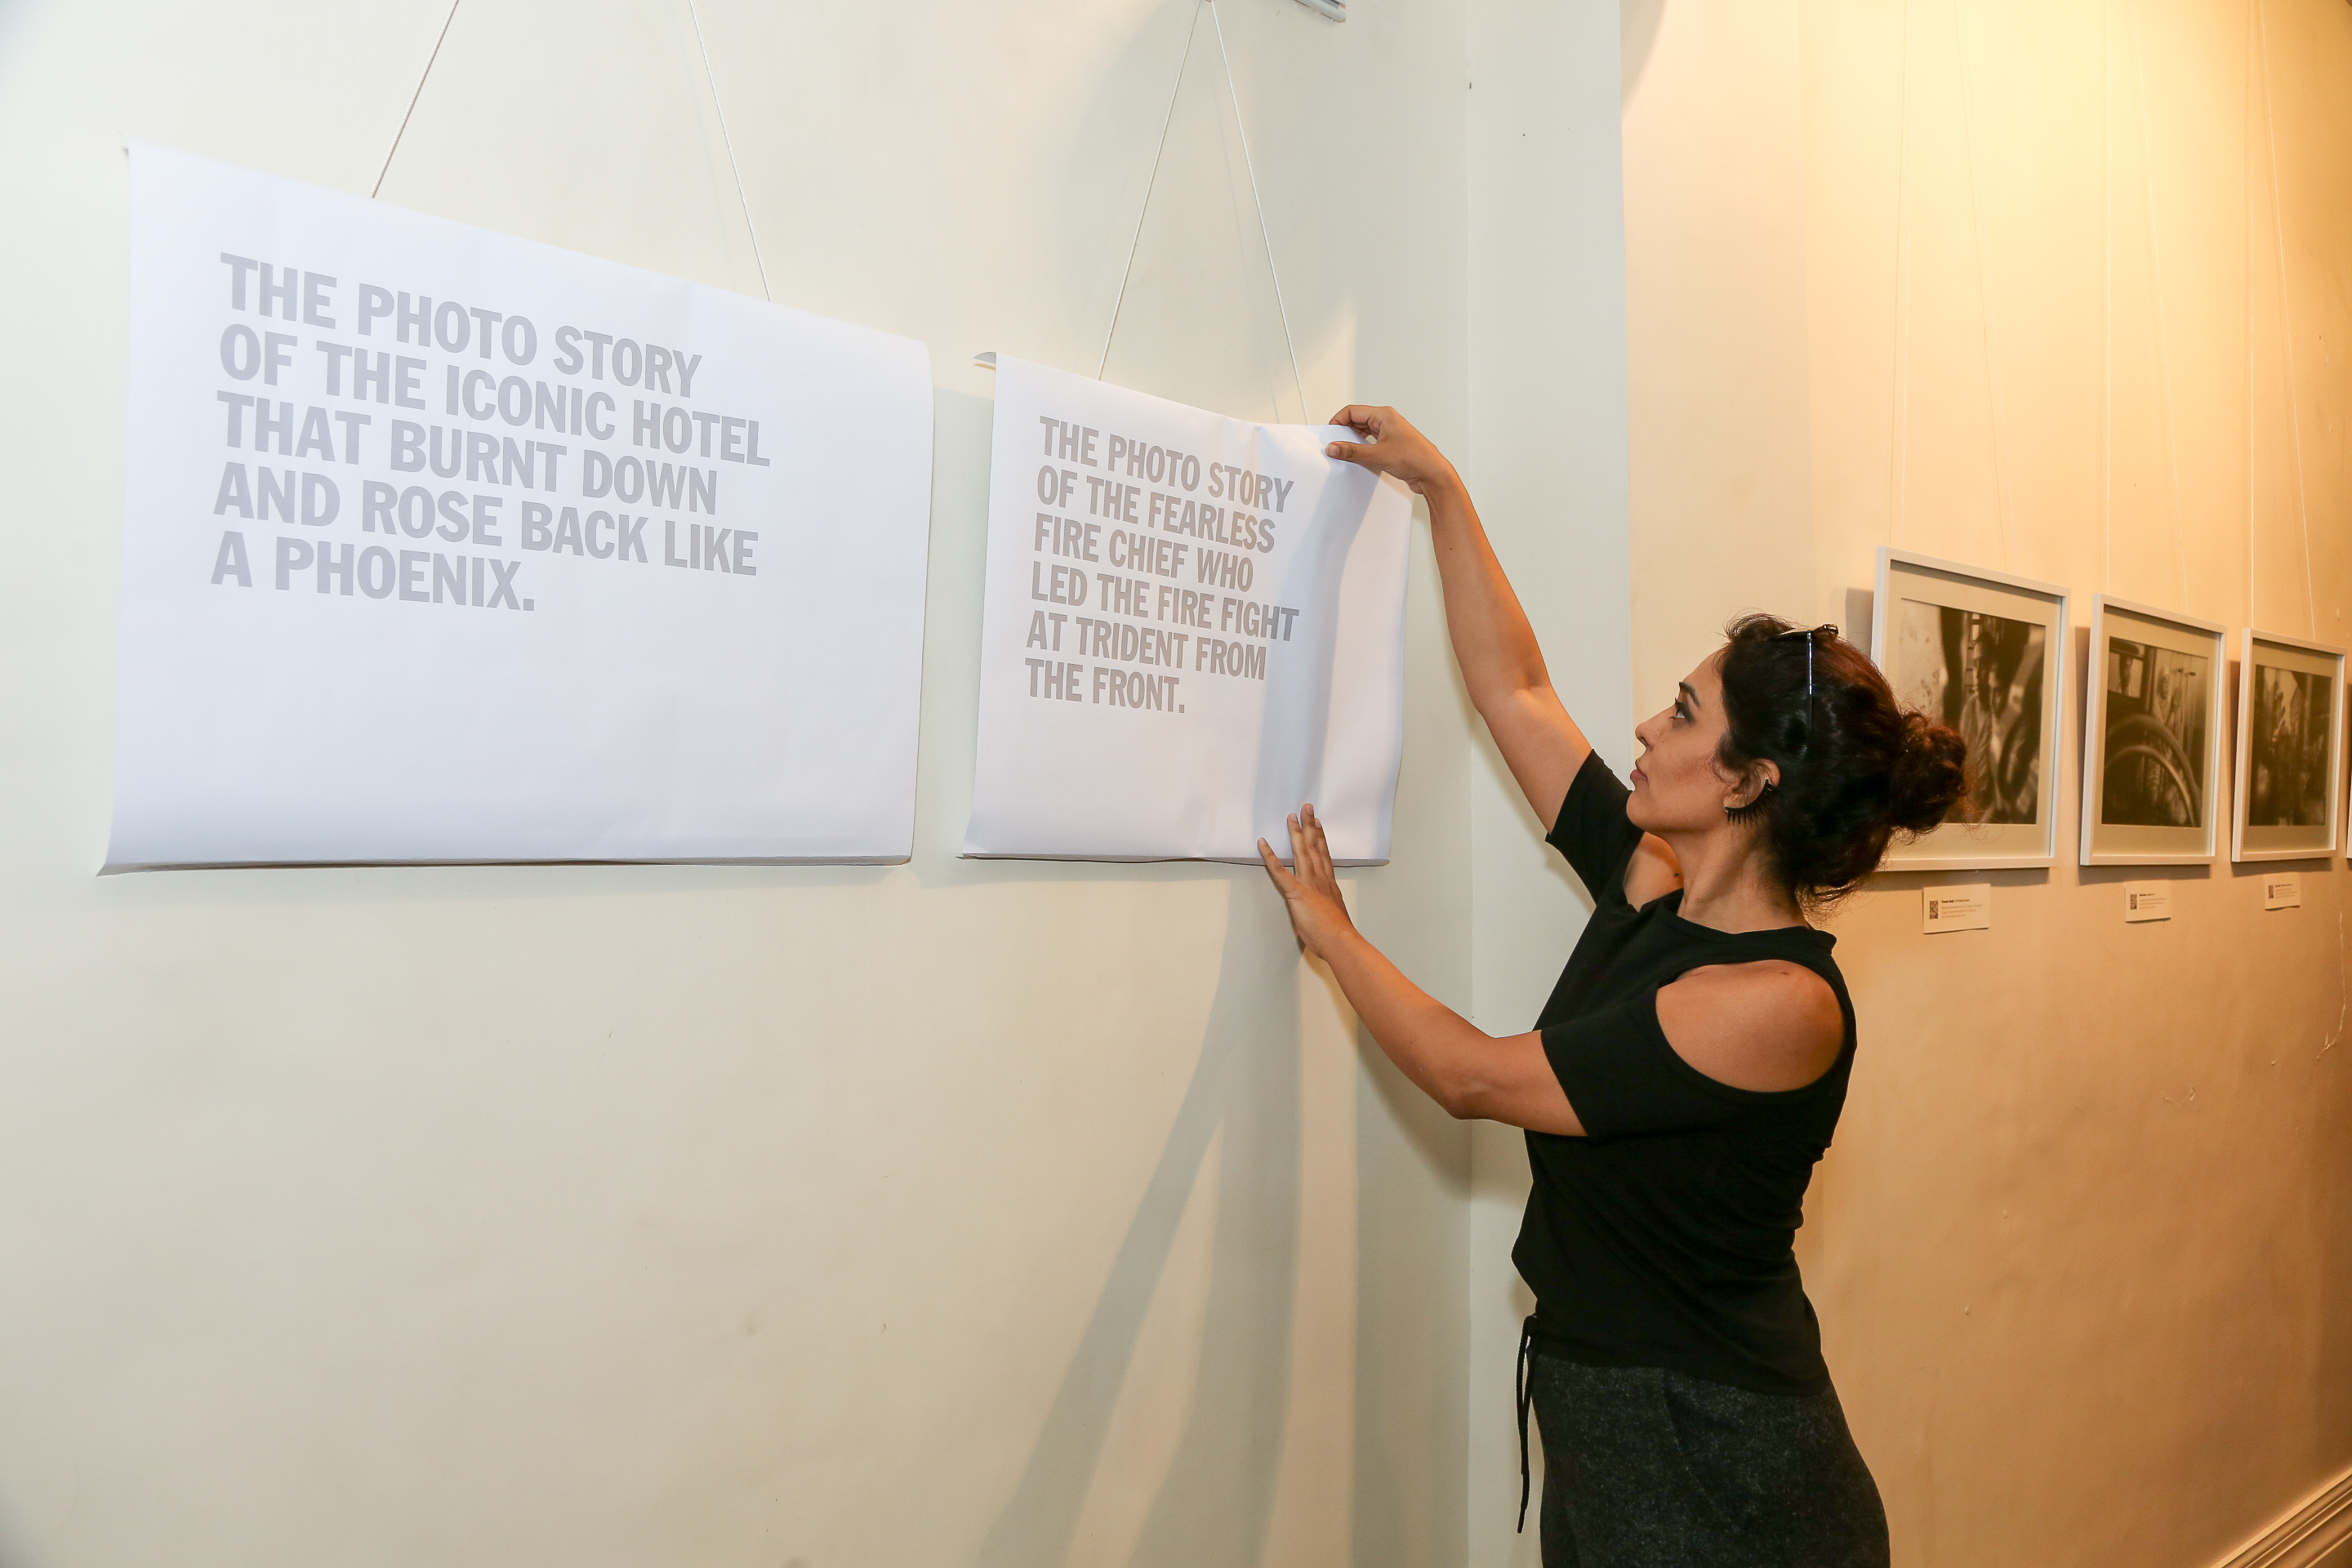 THE PHOTO STORY
OF THE ICONIC HOTEL
THAT BURNT DOWN
AND ROSE BACK LIKE
A PHOENIX.
THE PHOTO STORY
OF THE FEARLESS
FIRE CHIEF WHO
LED THE FIRE FIGHT
AT TRIDENT FROM
THE FRONT.